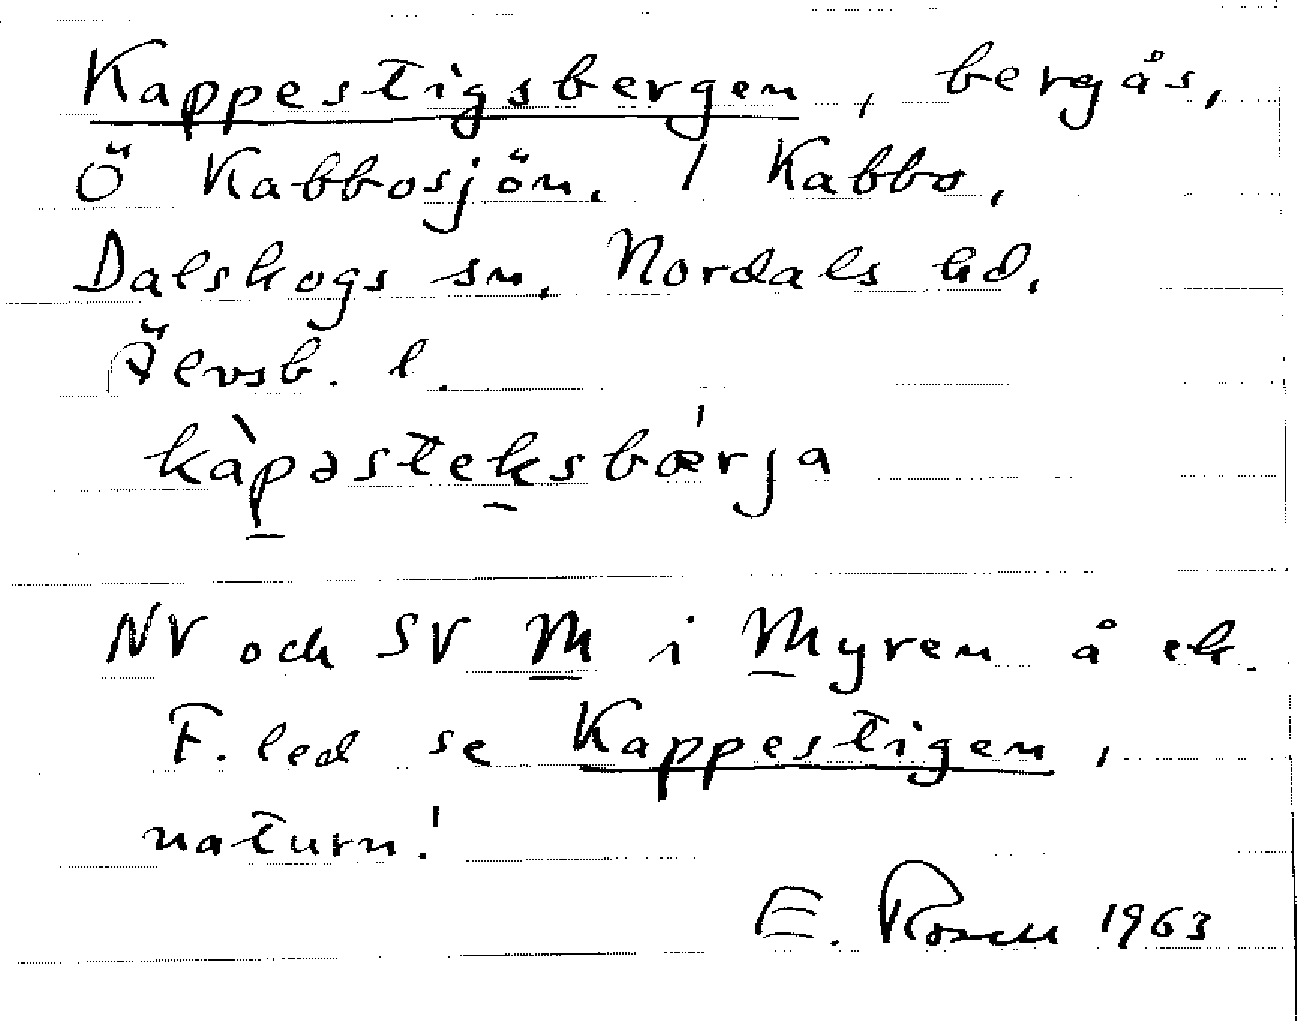 Kappestigsbergen, bergås,
Ö Kabbosjön. / Kabbo,
Dalskogs sn. Nordals hd.
Älvsb. l.
kàpəsteksbǽrja
NV och SV M i Myren å ek.
F. led se Kappestigen,
naturn!
E. Rosell 1963